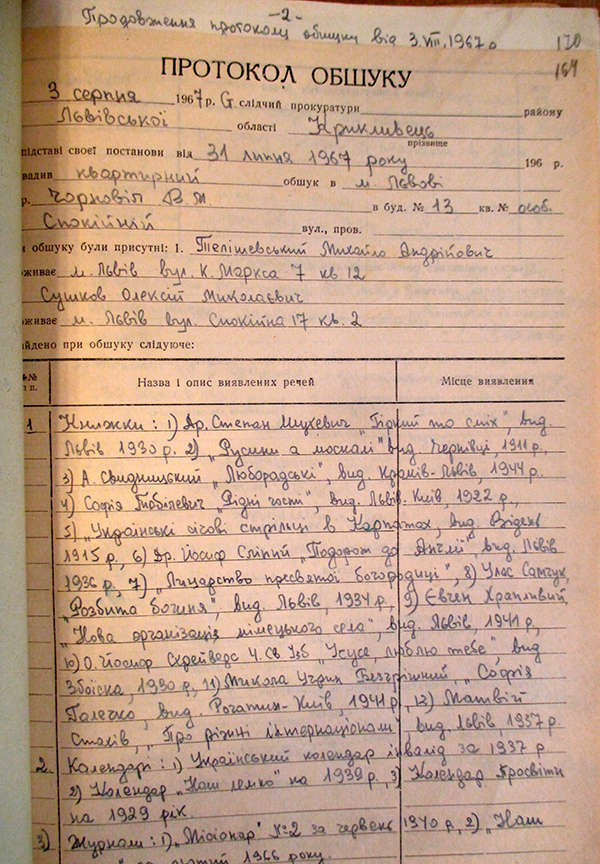 -2-
Продовження протоколу обшуку від 3.VIII.1967 р
170
164
ПРОТОКОЛ ОБШУКУ
3 серпня 1967 р. Я слідчий прокуратури району
Львівської області Крикливець
прізвище
підставі своєї постанови від 31 липня 1967 року 196 р.
квартирний обшук в м. Львові
р. Чорновіл В. М. в буд. № 13 кв. № особ.
Спокійній вул., пров.
и обшуку були присутні: 1. Телішевський Михайло Андрійович
оживає м. Львів вул. К. Маркса 7 кв 12
Сушков Олексій Миколаєвич
оживає м. Львів вул. Спокійна 17 кв. 2
айдено при обшуку слідуюче:
№№ п п. Назва і опис виявлених речей Місце виявлення
1 Книжки: 1) Др. Степан Шухевич „Гіркий то сміх", вид.
Львів 1930 р. 2) „Русини а москалі" вид. Чернівці, 1911 р.,
3) А. Свидницький „Люборадські", вид. Краків-Львів, 1944 р.
4) Софія „Рідні гості", вид. Львів-Київ, 1922 р.,
5) „Українські січові стрільці в Карпатах, вид Відень
1915 р., 6) Др. Йосиф Сліпий „Подорож до Англії", вид. Львів
1936 р., 7) „Лицарство пресвятої богородиці", 8) Улас Самчук,
„Розбита богиня", вид. Львів, 1934 р., 9) Євген Храпливий,
„Нова організація німецького села", вид. Львів, 1941 р.,
10) О. Йосиф Схрейверс Ч. Св „Ісусе, люблю тебе", вид
Збоіска, 1930 р., 11) Микола Угрин Безгрішний, „Софія
Галечко, вид. Рогатин-Київ, 1941 р, 12) Матвій
Стахів, „Про різні інтернаціонали", вид. Львів, 1937
2. Календарі: 1) Український календар інвалід за 1937 р
2) Календар „Наш лемко" на 1939 р., 3) Календар Просвіти
на 1929 рік.
3) Журнали: 1) „Місіонар" №2 за червень 1940 р., 2) „Наш
лютий 1966 року.